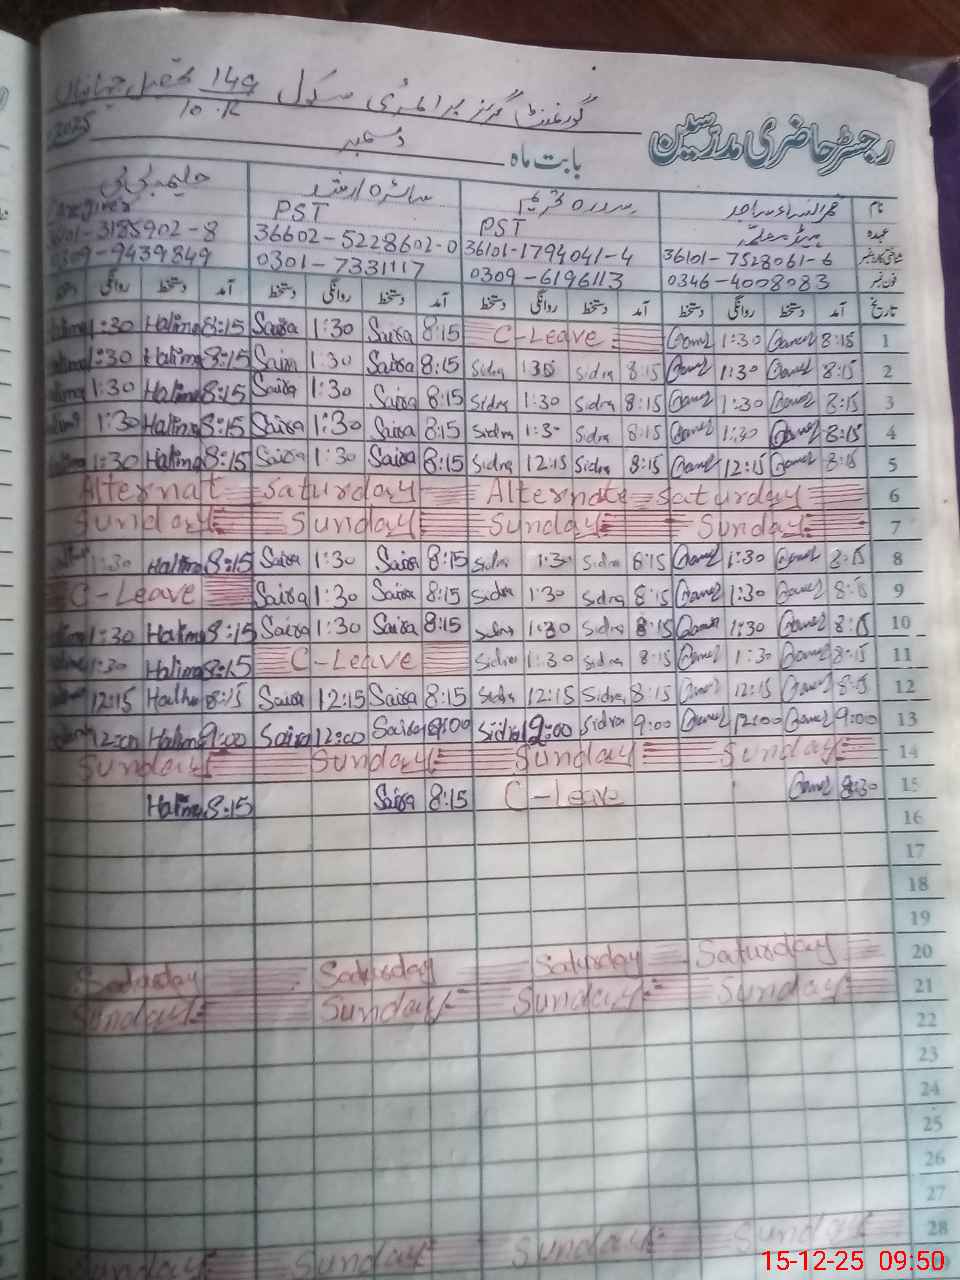 گورنمنٹ گرلز پرائمری سکول 149 تحصیل جہانیاں
10-R
رجسٹر حاضری مدرسین
بابت ماہ دسمبر 2025
نام قمرالنساء ساجد سدرہ کریم سائرہ ارشد حلیمہ بی بی
عہدہ ہیڈ معلمہ PST PST Caregiver
شناختی کارڈ نمبر 36101-7528061-6 36101-1794041-4 36602-5228602-0 3185902-8
فون نمبر 0346-4008083 0309-6196113 0301-7331117 0309-9439849
تاریخ آمد دستخط روانگی دستخط آمد دستخط روانگی دستخط آمد دستخط روانگی دستخط آمد دستخط روانگی دستخط
1:30 Halima 8:15 Saira 1:30 Saira 8:15 C-Leave 1:30 8:15 1
1:30 Halima 8:15 Saira 1:30 Saira 8:15 Sidra 1:30 Sidra 8:15 1:30 8:15 2
1:30 Halima 8:15 Saira 1:30 Saira 8:15 Sidra 1:30 Sidra 8:15 1:30 8:15 3
1:30 Halima 8:15 Saira 1:30 Saira 8:15 Sidra 1:30 Sidra 8:15 1:30 8:15 4
1:30 Halima 8:15 Saira 1:30 Saira 8:15 Sidra 12:15 Sidra 8:15 12:15 8:15 5
Alternat Saturday Alternate Saturday 6
Sunday Sunday Sunday Sunday 7
1:30 Halima 8:15 Saira 1:30 Saira 8:15 Sidra 1:30 Sidra 8:15 1:30 8:15 8
C-Leave Saira 1:30 Saira 8:15 Sidra 1:30 Sidra 8:15 1:30 8:15 9
1:30 Halima 8:15 Saira 1:30 Saira 8:15 Sidra 1:30 Sidra 8:15 1:30 8:15 10
1:30 Halima 8:15 C-Leave Sidra 1:30 Sidra 8:15 1:30 8:15 11
12:15 Halima 8:15 Saira 12:15 Saira 8:15 Sidra 12:15 Sidra 8:15 12:15 8:15 12
12:00 Halima 9:00 Saira 12:00 Saira 9:00 Sidra 9:00 Sidra 9:00 12:00 9:00 13
Sunday Sunday Sunday Sunday 14
Halima 8:15 Saira 8:15 C-Leave 8:30 15
16
17
18
19
Saturday Saturday Saturday Saturday 20
Sunday Sunday Sunday Sunday 21
22
23
24
25
26
27
Sunday Sunday Sunday Sunday 28
15-12-25 09:50